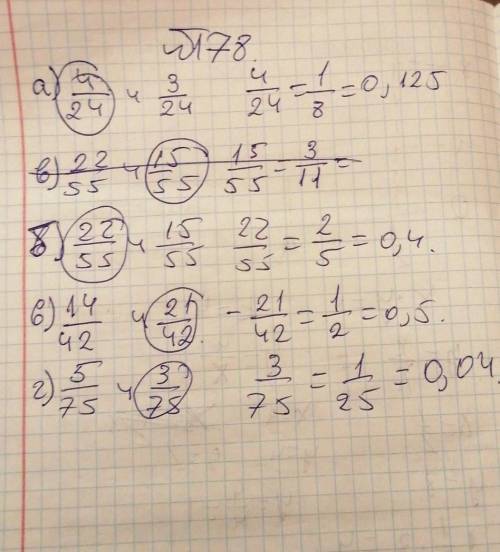 №178
а) 4/24 и 3/24 4/24 = 1/8 = 0,125
в) 22/55 и 15/55 15/55 = 3/11 =
б) 22/55 и 15/55 22/55 = 2/5 = 0,4.
в) 14/42 и 21/42. - 21/42 = 1/2 = 0,5.
г) 5/75 и 3/75 3/75 = 1/25 = 0,04